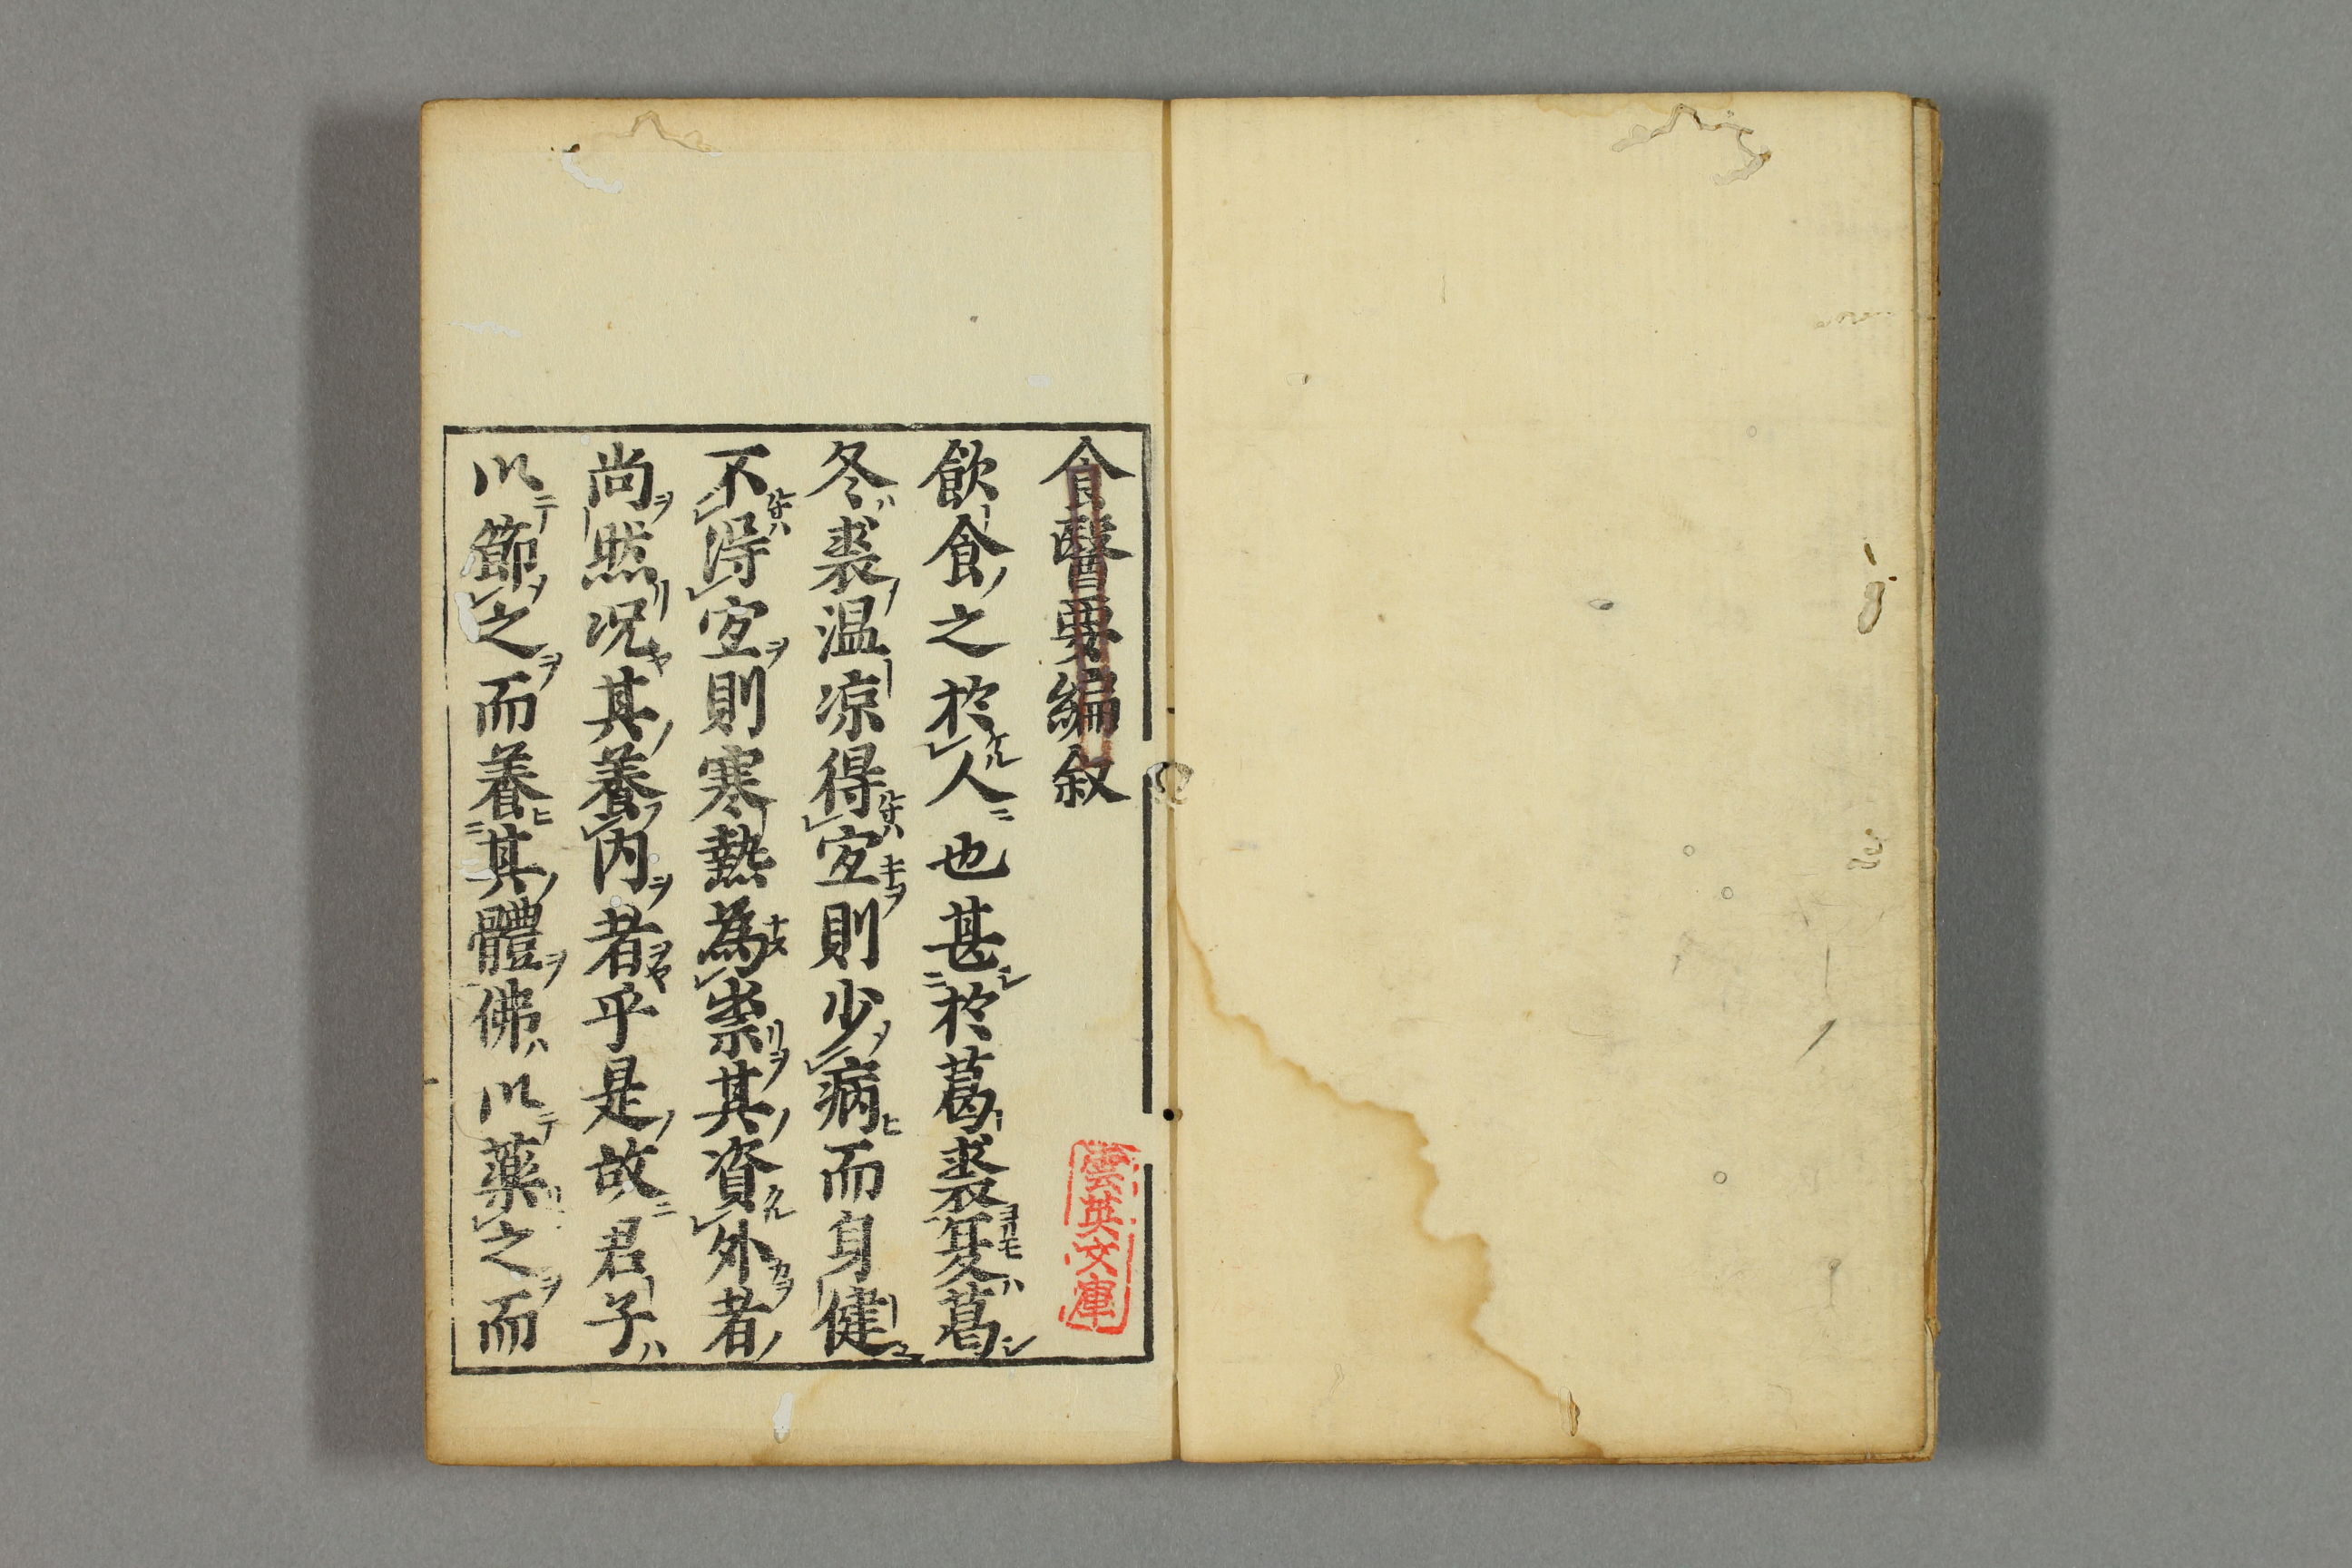 食醫要編叙
飲食之於人也甚於葛裘夏葛
冬裘温凉得宜則少病而身健
不得宜則寒熱為祟其資外者
尚然況其養內者乎是故君子
以節之而養其體佛以藥之而
雲英文庫